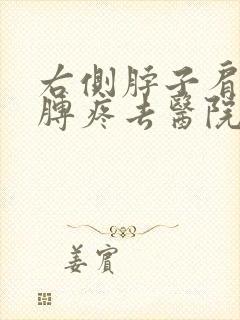 右側脖子肩
脾疼去醫院
姜賓